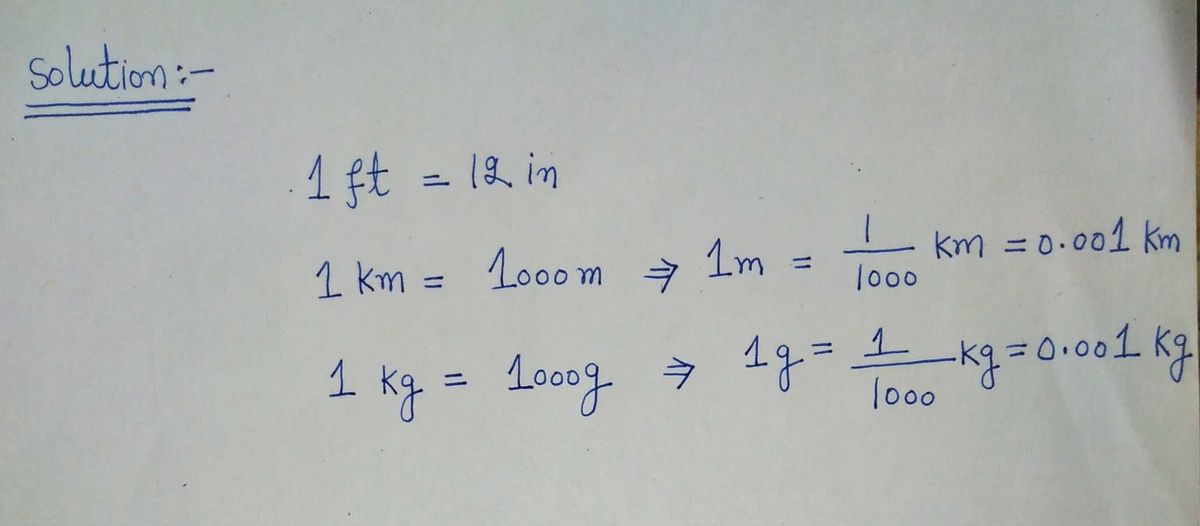 Solution:-
1 ft = 12 in
1 km = 1000 m ⇒ 1m = 1/1000 km = 0.001 km
1 kg = 1000g ⇒ 1g = 1/1000 kg = 0.001 kg